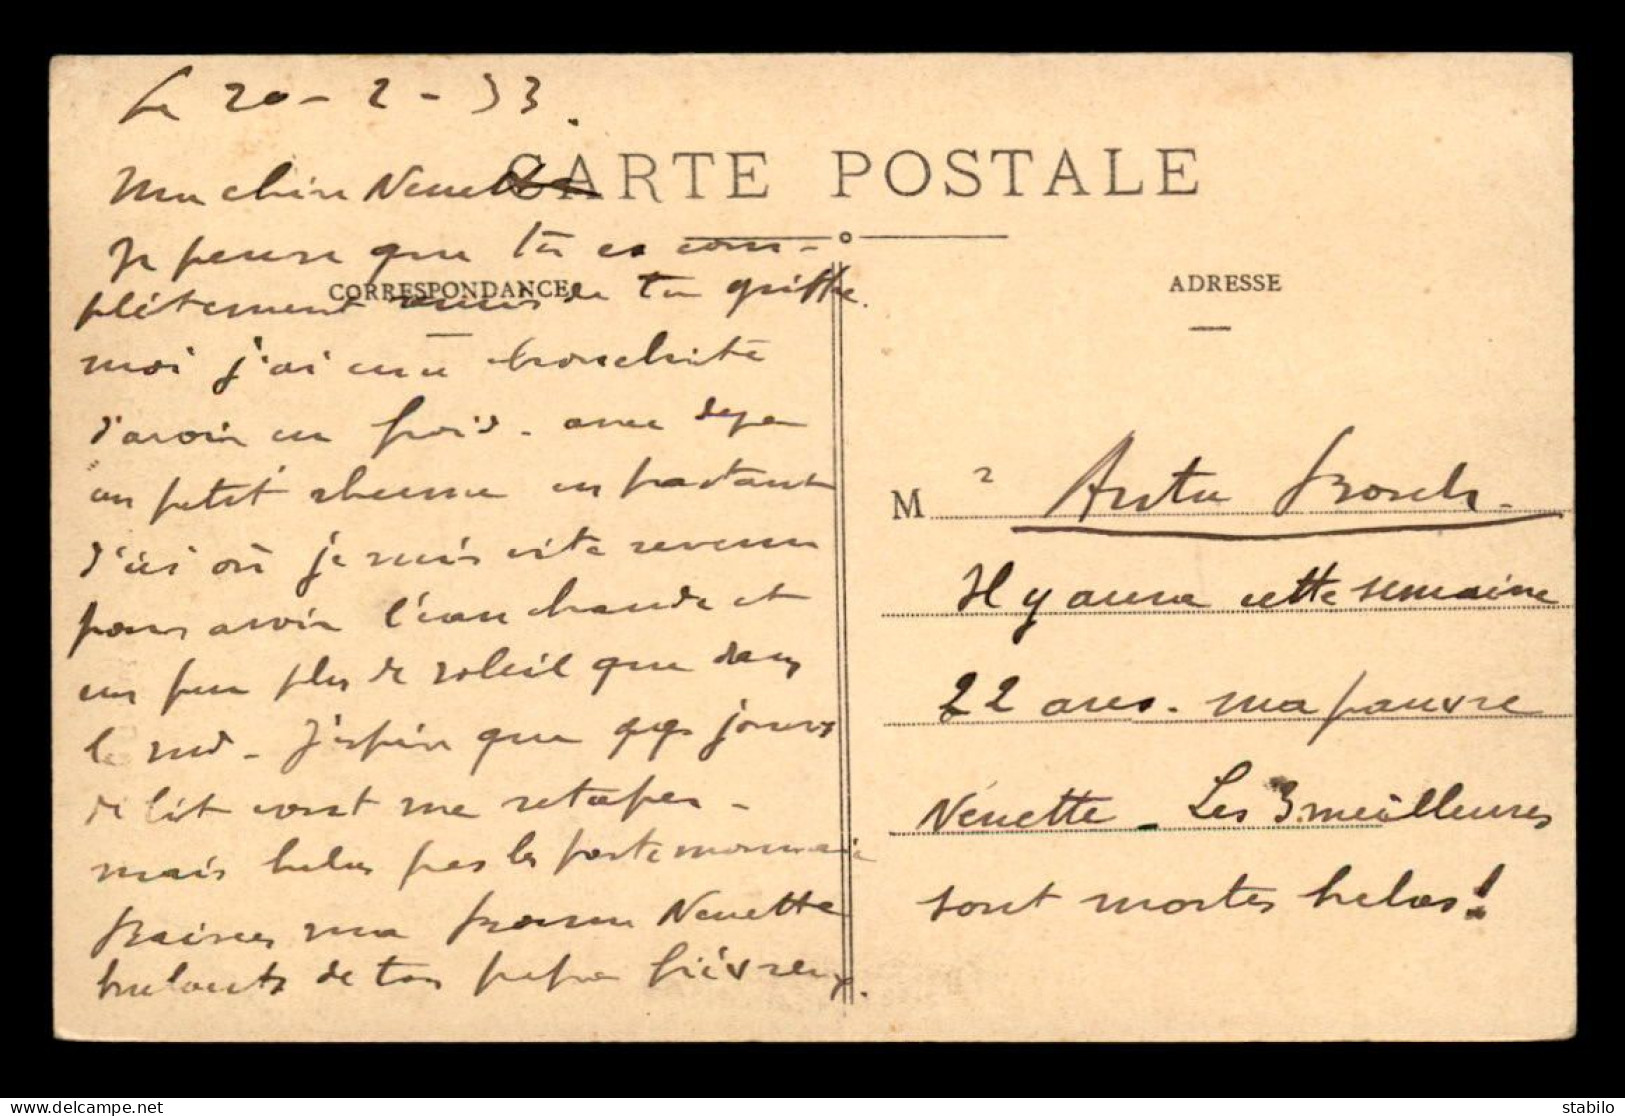 Le 20-2-33.
CARTE POSTALE
Ma chère Nenette
Je pense que tu es com-
CORRESPONDANCE
plètement remis de ta grippe.
moi j'ai une bronchite
d'avoir eu froid. avec deja
un petit rhume en partant
d'ici où je suis vite revenu
pour avoir l'eau chaude et
un peu plus de soleil que dans
le midi - J'espère que qqs jours
de lit vont me retaper -
mais helas pas le porte monnaie
Baisers ma bonne Nenette
brulants de ton papa fiévreux.
ADRESSE
M r
Il y aura cette semaine
22 ans. ma pauvre
Nénette - Les 3 meilleures
sont mortes helas!
stabilo